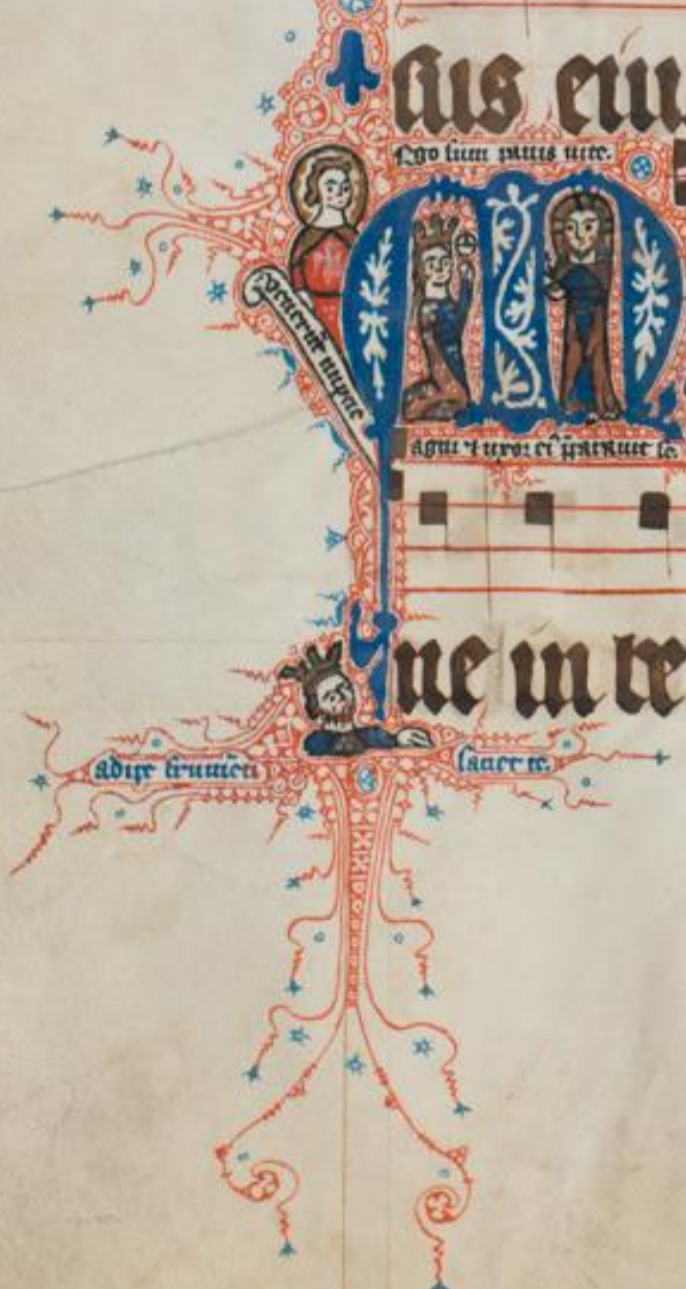 eiu
Ego sum panis uite.
venerūt nupcie
agni ⁊ uxor ei' p̄parauit se.
ne in te
adipe frumēti saciet te.